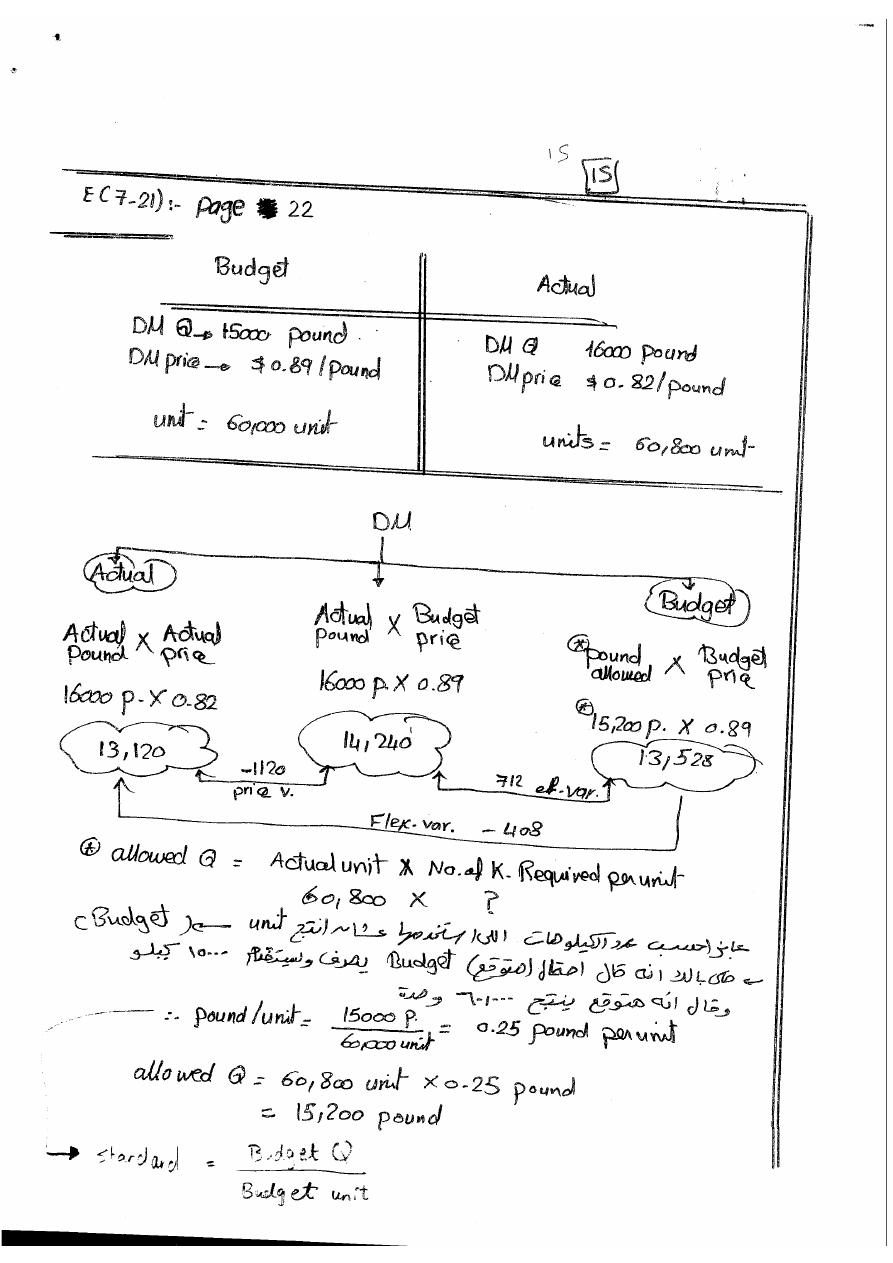 15
15
E(7-21):- page 22
Budget
Actual
DM Q → 15000 pound
DM price → $0.89/pound
unit = 60,000 unit
DM Q 16000 pound
DM price $0.82/pound
units = 60,800 unit
DM
Actual
Budget
Actual pound X Actual price
Actual pound X Budget price
* pound allowed X Budget price
16000 p. X 0.82
16000 p. X 0.89
* 15,200 p. X 0.89
13,120
14,240
13,528
-1120
price v.
712 ef. var.
Flex. var. - 408
* allowed Q = Actual unit X No. of K. Required per unit
60,800 X ?
عايز احسب عدد الكيلوهات اللى استخدمها عشان انتج unit ← (Budget)
← خلى بالك انه قال (متوقع) Budget يصرف ويستخدم ١٥٠٠٠ كيلو
وقال انه متوقع ينتج ٦٠,٠٠٠ وحدة
∴ pound/unit = 15000 p. / 60,000 unit = 0.25 pound per unit
allowed Q = 60,800 unit X 0.25 pound
= 15,200 pound
→ standard = Budget Q / Budget unit